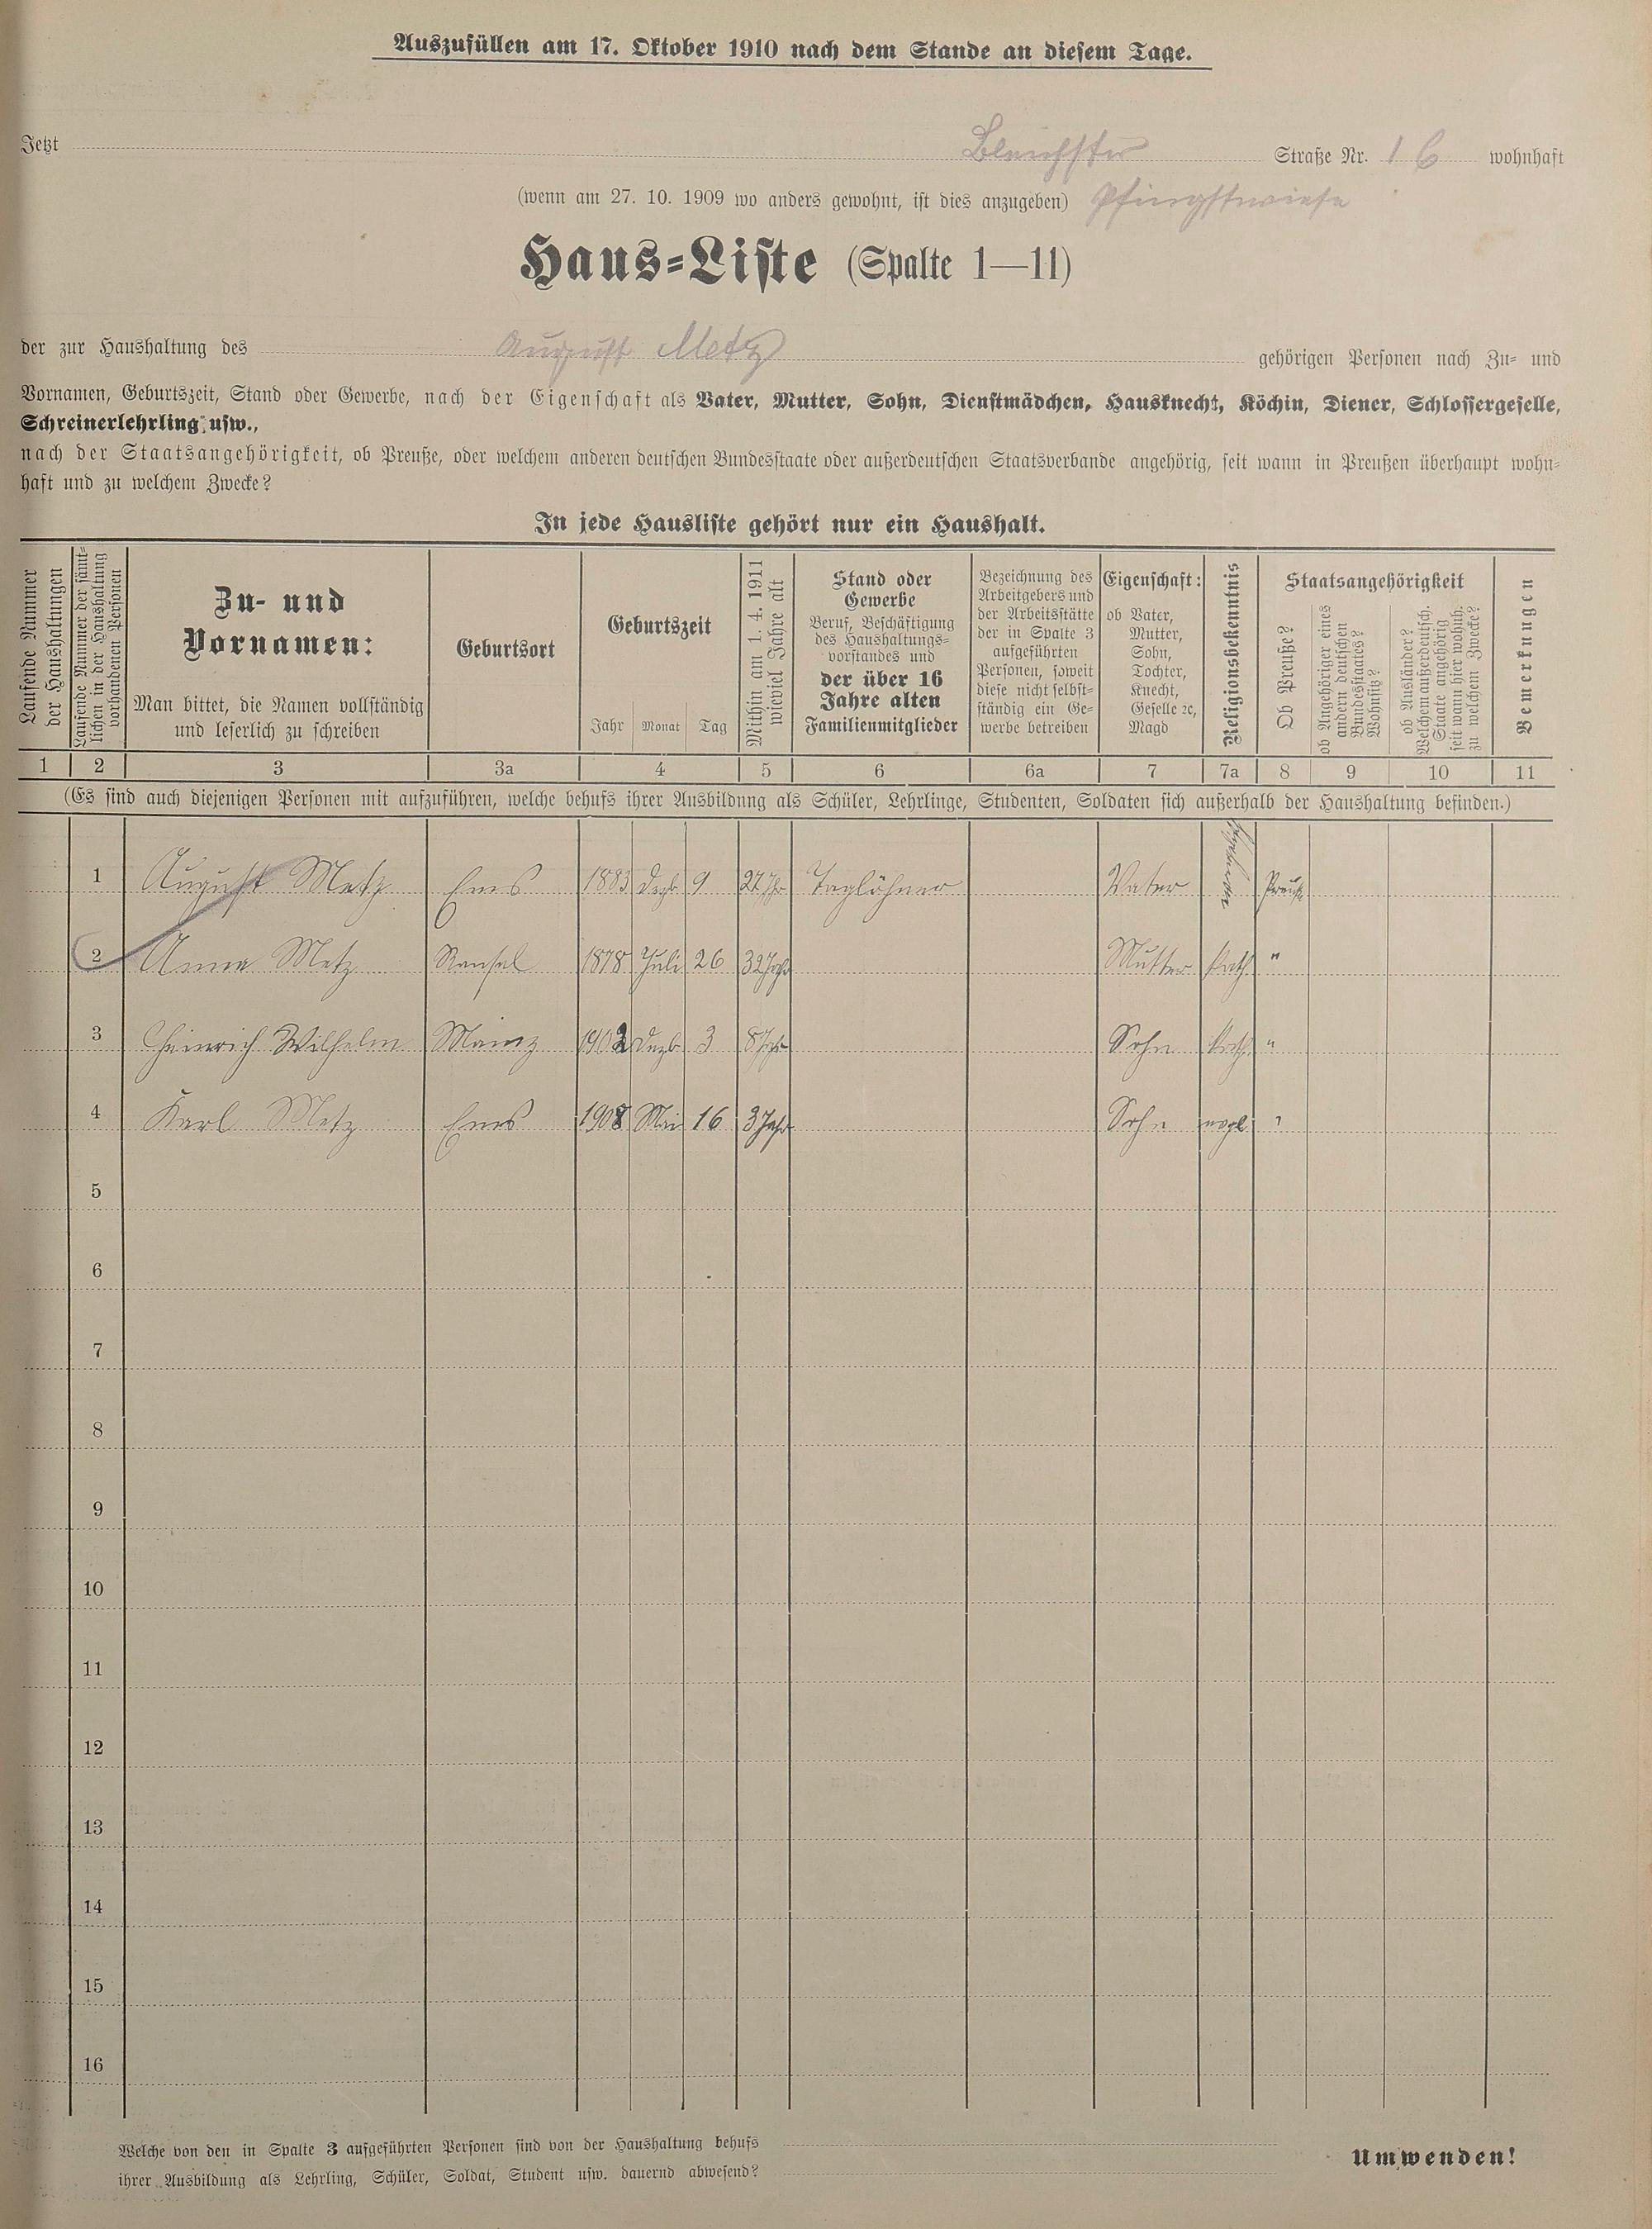 Auszufüllen am 17. Oktober 1910 nach dem Stande an diesem Tage.
Jetzt Bleichstr Straße Nr. 16 wohnhaft
(wenn am 27. 10. 1909 wo anders gewohnt, ist dies anzugeben) Pfingstwiese
Haus=Liste (Spalte 1—11)
der zur Haushaltung des August Metz gehörigen Personen nach Zu= und
Vornamen, Geburtszeit, Stand oder Gewerbe, nach der Eigenschaft als Vater, Mutter, Sohn, Dienstmädchen, Hausknecht, Köchin, Diener, Schlossergeselle,
Schreinerlehrling usw.,
nach der Staatsangehörigkeit, ob Preuße, oder welchem anderen deutschen Bundesstaate oder außerdeutschen Staatsverbande angehörig, seit wann in Preußen überhaupt wohn=
haft und zu welchem Zwecke?
In jede Hausliste gehört nur ein Haushalt.
Laufende Nummer
der Haushaltungen
Laufende Nummer der sämt=
lichen in der Haushaltung
vorhandenen Personen
Zu- und
Vornamen:
Man bittet, die Namen vollständig
und leserlich zu schreiben
Geburtsort
Geburtszeit
Jahr Monat Tag
Mithin am 1. 4. 1911
wieviel Jahre alt
Stand oder
Gewerbe
Beruf, Beschäftigung
des Haushaltungs=
vorstandes und
der über 16
Jahre alten
Familienmitglieder
Bezeichnung des
Arbeitgebers und
der Arbeitsstätte
der in Spalte 3
aufgeführten
Personen, soweit
diese nicht selbst=
ständig ein Ge=
werbe betreiben
Eigenschaft:
ob Vater,
Mutter,
Sohn,
Tochter,
Knecht,
Geselle ꝛc,
Magd
Religionsbekenntnis
Staatsangehörigkeit
Ob Preuße?
ob Angehöriger eines
andern deutschen
Bundesstaates?
Wohnsitz?
ob Ausländer?
Welchem außerdeutsch.
Staate angehörig
seit wann hier wohnh.
zu welchem Zwecke?
Bemerkungen
1 2 3 3a 4 5 6 6a 7 7a 8 9 10 11
(Es sind auch diejenigen Personen mit aufzuführen, welche behufs ihrer Ausbildung als Schüler, Lehrlinge, Studenten, Soldaten sich außerhalb der Haushaltung befinden.)
1 August Metz Ems 1883 Dezb 9 27 Jhr Taglöhner Vater Preuße
2 Anna Metz Ransel 1878 Juli 26 32 Jahr Mutter Kath. "
3 Heinrich Wilhelm Mainz 1902 Dezb 3 8 Jahr Sohn Kath. "
4 Karl Metz Ems 1908 Mai 16 3 Jahr Sohn evgl "
5
6
7
8
9
10
11
12
13
14
15
16
Welche von den in Spalte 3 aufgeführten Personen sind von der Haushaltung behufs
ihrer Ausbildung als Lehrling, Schüler, Soldat, Student usw. dauernd abwesend?
Umwenden!